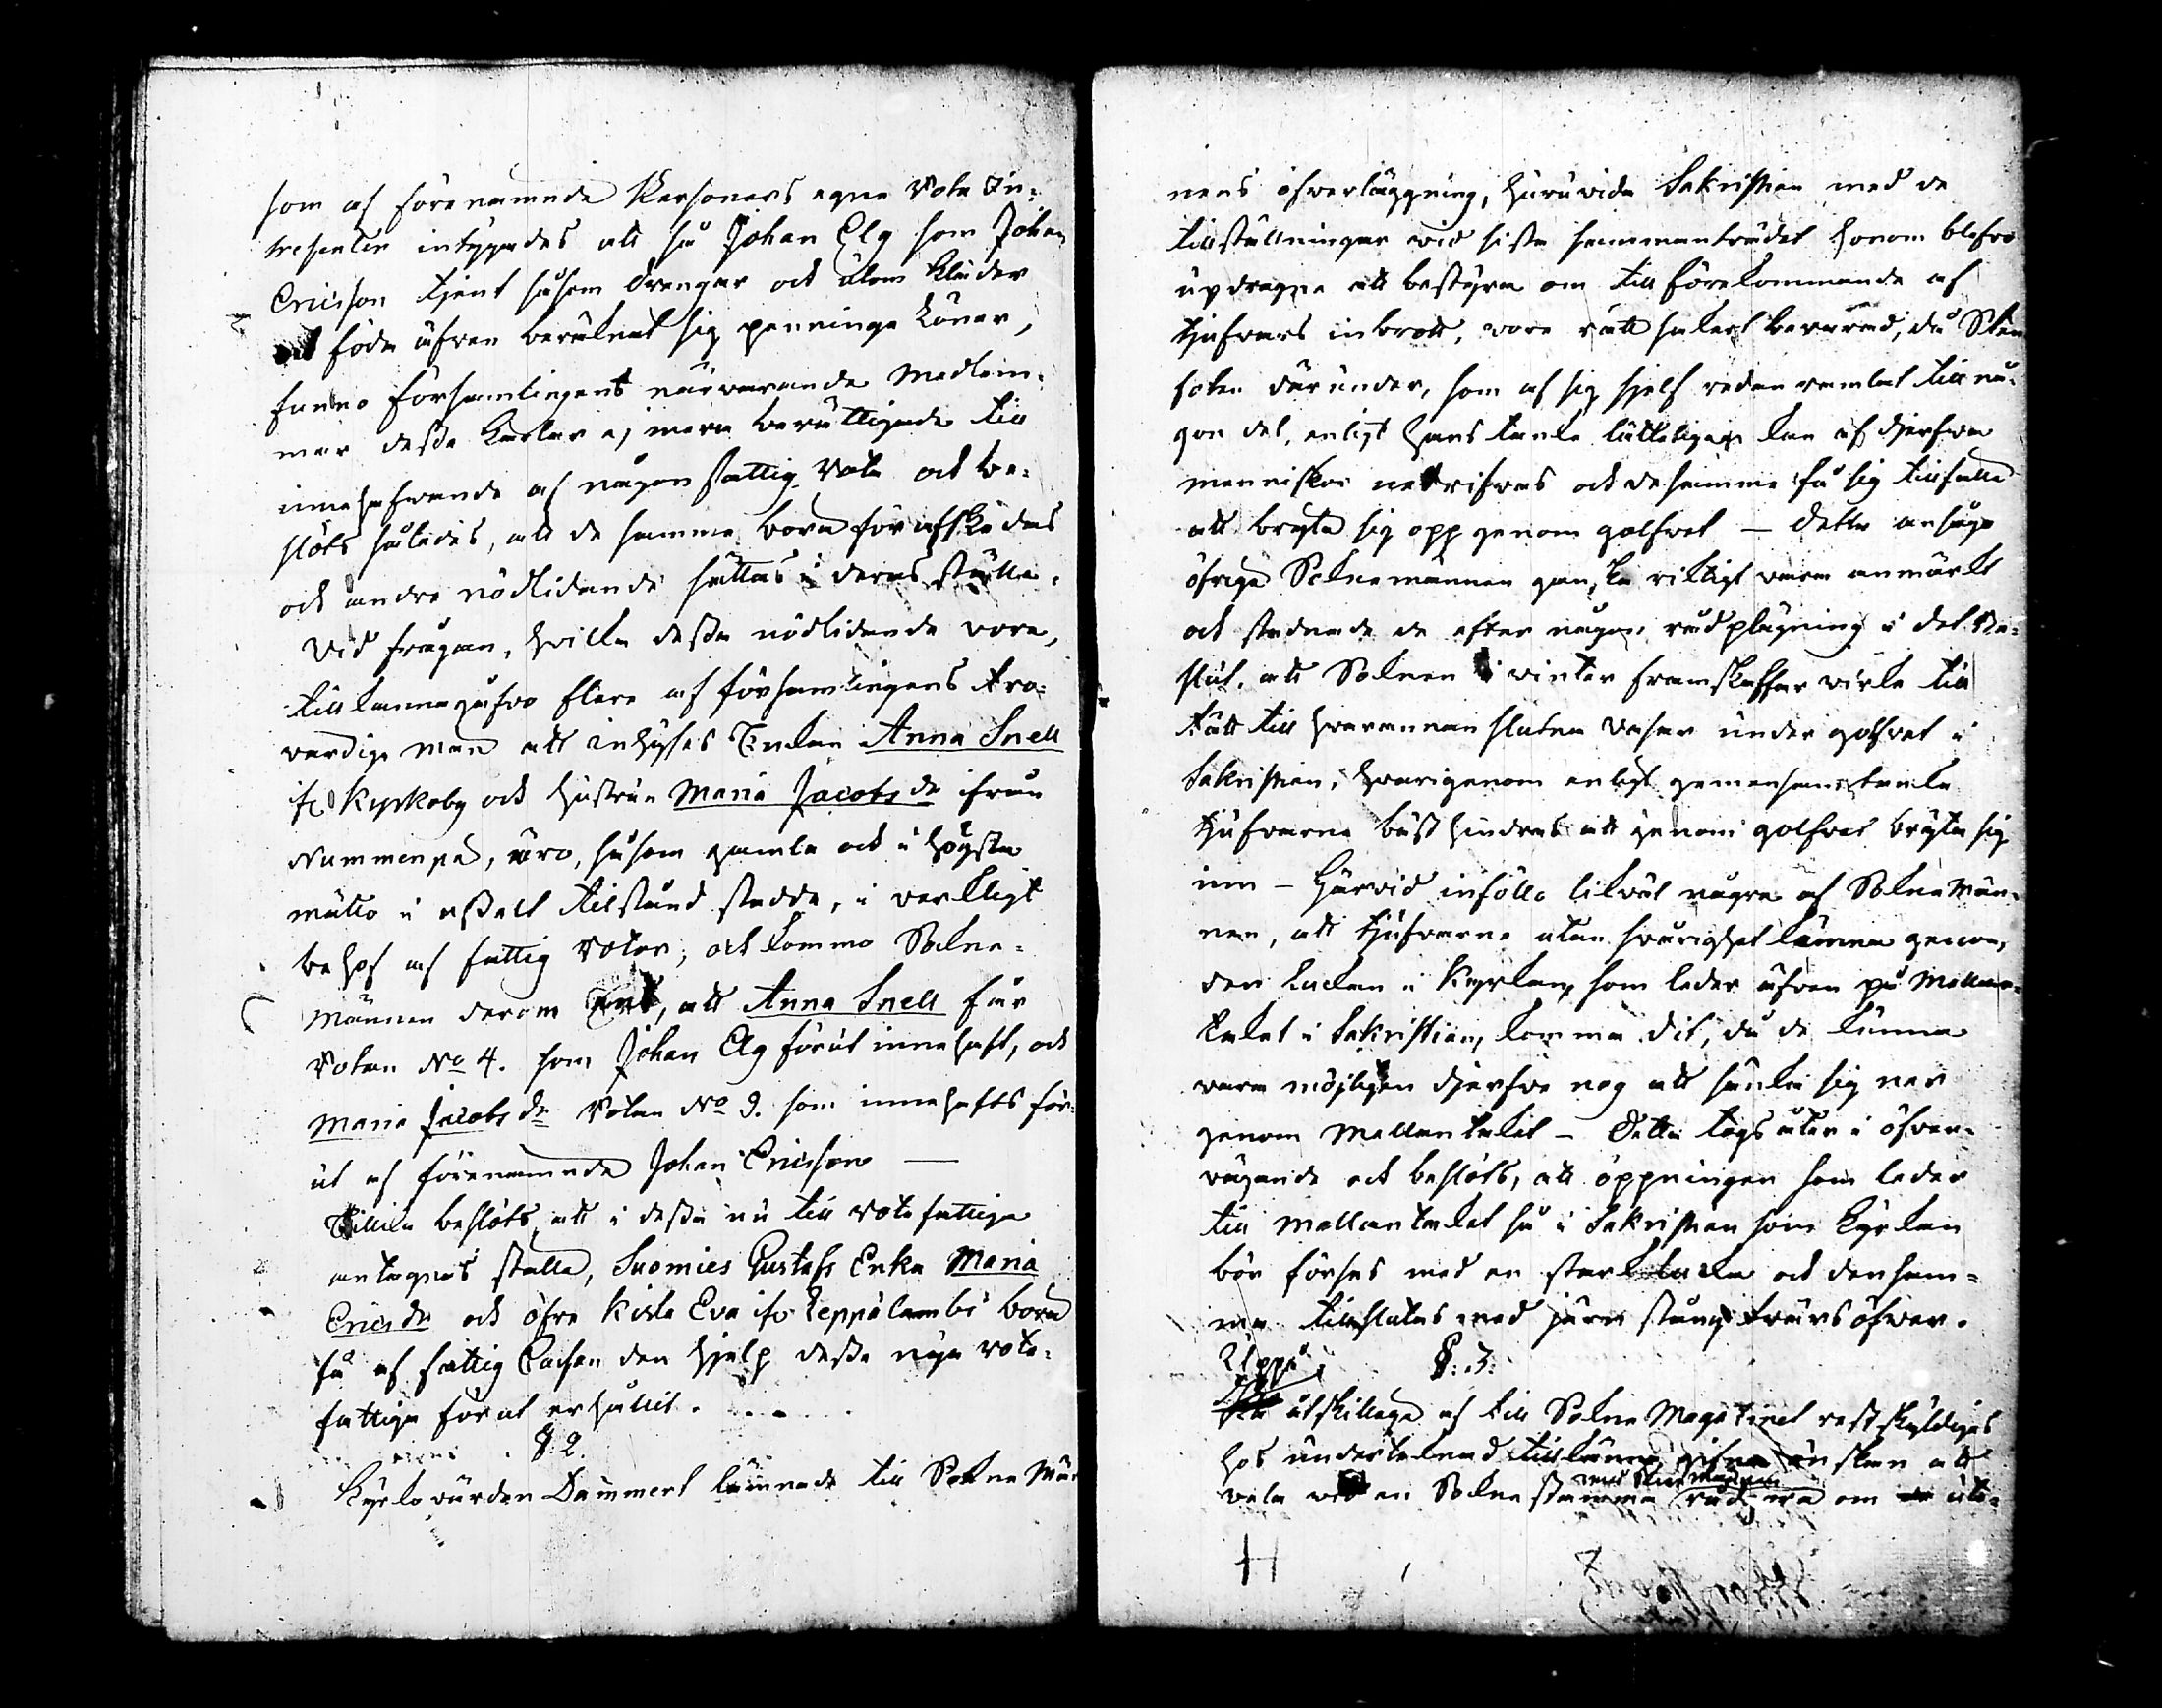 som af förenamnde Personers egne Rote In-
tressenter intygades att så Johan Elg som Johan
Ericsson tjent såsom drengar och utom kläder
och föda äfven beräknat sig penninge löner,
funno församlingens närvarande Medlem-
mar dessa karlar ej mera berättigade till
innehafwande af någon fattig Rote och be-
slöts således, att de samma borde för afskedas
och andre nödlidande sättas i deras ställe.
Vid frågan, hvilka dessa nödlidande vore,
tillkännagåfvo flere af församlingens tro-
värdige män att inhyses Enkan Anna Snell
ifr. Kyrkoby och hustrun Maria Jacobs dr ifrån
Nummenpä, äro, såsom gamla och i högsta
måtto i uselt tilstånd stadde, i verkligt
behof af fattig Roter; och kommo Sockne-
männen derom ens, att Anna Snell får
Rotan No 4. som Johan Elg förut innehaft, och
Maria Jacobs dr Rotan No 9. som innehafts för-
ut af förenamnde Johan Ericsson —
Tillika beslöts att i dessa nu till rotefattiga
antagnas ställe, Suomies Gustafs Enka Maria
Erics dr och öfre Kisko Eva ifr. Leppälambi borde
få af fattig Cassan den hjelp dessa nya rote-
fattiga förut erhållit.
§. 2.
Kyrkovärden Dammert lämnade till Sockne Män-
nens öfverläggning, huruvida Sakristian med de
tillställningar vid sista sammanträdet honom blefvo
updragne att bestyra om till förekommande af
tjufvars inbrott, vore rätt säkert bevarad, då Sten
foten därunder, som af sig sjelf redan ramlat till nå-
gon del, enligt hans tanke lätteligen kan af djerfva
menniskor nedrifvas och de samma få sig tillfälle
att bryta sig opp genom golfvet — Detta ansågo
öfrige Socknemännen ganska riktigt vara anmärkt
och stadnade de efter någon rådplägning i det Be-
slut, att Socknen i winter framskaffar virke till
tätt till hvarannan slutna Vasar under golfvet i
Sakristian, hvarigenom enligt gemensam tanke
tjufvarne bäst hindras att genom golfvet bryta sig
inn — Härvid inföllo likväl några af Sockne Män-
nen, att tjufvarne utan svårighet kunna genom
den Luckan i Kyrkan, som leder äfven på Mellan-
taket i Sakristian, komma dit, då de kunna
vara möjligen djerfve nog att sänka sig ner
genom Mellantaket — Detta togs åter i öfver-
vägande och beslöts, att öppningen som leder
till Mellantaket så i Sakristian som Kyrkan
bör förses med en stark lucka och densam-
ma tillslutas med järn stång tvärs öfver.
§. 3.
Uppå
åtskillige af till Sockne Magazinet restskyldiges
hos undertecknad tillkänna gifna önskan att
med Sockne Männen
vid en Sockne stämma rådgöra om ute-
H